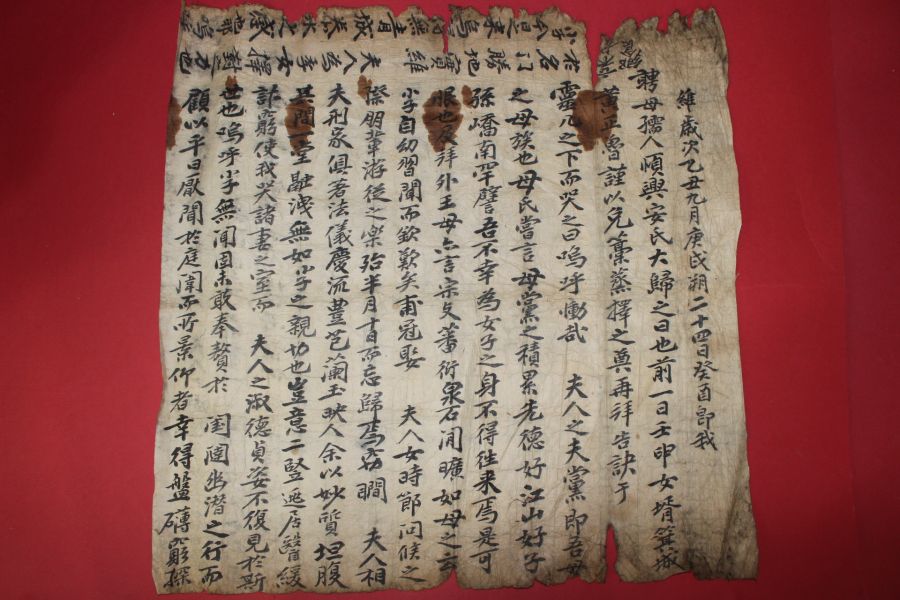 維歲次乙丑九月庚戌朔二十四日癸酉卽我
聘母孺人順興安氏大歸之日也前一日壬申女壻箕城
黃正魯謹以 之奠再拜告訣于
靈几之下而哭之曰嗚呼慟哉 夫人之夫黨卽吾母
之母族也母氏嘗言母黨之積累先德好江山好子
孫嶠南罕譬吾不幸為女子之身不得往來焉是可
恨也及拜外王母亦言宗支蕃衍泉石閒曠如母之云
小子自幼習聞而欽歎矣甫冠娶 夫人女時節問候之
際朋輩游從之樂殆半月十日而忘歸焉竊瞯 夫人相
夫刑家俱著法儀慶流豊芑蘭玉映人余以妙質坦腹
其間一堂融洩無如小子之親切也豈意二竪遞居醫緩
窮使我哭諸妻之室而 夫人之淑德貞姿不復見於斯
世也嗚呼小子無聞固未敢奉贅於 閨閫幽潛之行而
顧以平日厭聞於庭闈而所景仰者幸得盤礴窮探
於名门勝地實維 夫人為季女擇對之力也